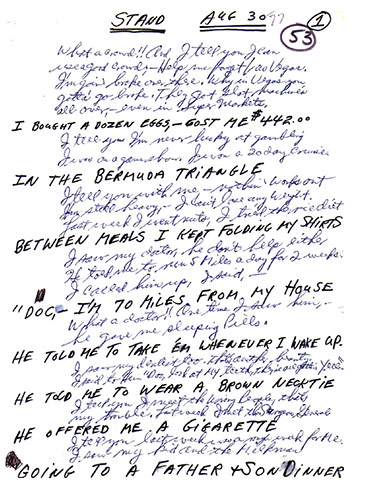 STAND AUG 30 97 1
53
What a crowd!! And I tell you I can
use a good crowd - Help me forget Las Vegas.
I'm goin' broke over there. Why in Vegas you
gotta go broke. They got slot machines
all over - even in Super Markets.
I BOUGHT A DOZEN EGGS, - COST ME $442.00
I tell you I'm never lucky at gambling
I was on a game show. I won a 20 day cruise
IN THE BERMUDA TRIANGLE
I tell you with me - nothin' works out
I'm still heavy - I can't lose any weight.
Last week I went nuts, I tried the rice diet
BETWEEN MEALS I KEPT FOLDING MY SHIRTS
I saw my doctor, he don't help either
He told me to run 5 Miles a day for 2 weeks.
I called him up, I said,
"DOC, I'M 70 MILES FROM MY HOUSE
What a doctor!! One time I saw him, -
he gave me sleeping Pills.
HE TOLD ME TO TAKE 'EM WHENEVER I WAKE UP.
I saw my dentist too. That's another beauty
I said to him "Doc, look at My Teeth, they're all yellow"
HE TOLD ME TO WEAR A BROWN NECKTIE
I tell you, I meet the wrong people, that's
my trouble. Last week I met the Surgeon General
HE OFFERED ME A CIGARETTE
I tell you last week was a rough week for me.
I saw my kid and the Milkman
GOING TO A FATHER + SON DINNER